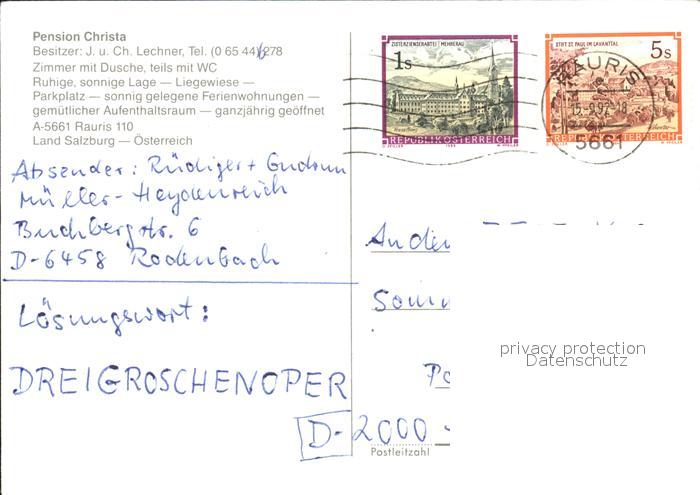 Pension Christa
Besitzer: J. u. Ch. Lechner, Tel. (0 65 44) 6278
Zimmer mit Dusche, teils mit WC
Ruhige, sonnige Lage — Liegewiese —
Parkplatz — sonnig gelegene Ferienwohnungen —
gemütlicher Aufenthaltsraum — ganzjährig geöffnet
A-5661 Rauris 110
Land Salzburg — Österreich
Absender: Rüdiger + Gudrun
Müller-Heydenreich
Buchbergstr. 6
D-6458 Rodenbach
Lösungswort:
DREIGROSCHENOPER
ZISTERZIENSERABTEI MEHRERAU
1s
REPUBLIK ÖSTERREICH
STIFT ST. PAUL IM LAVANTTAL
5s
REPUBLIK ÖSTERREICH
RAURIS
5661
An den
D-2000
Postleitzahl
privacy protection
Datenschutz